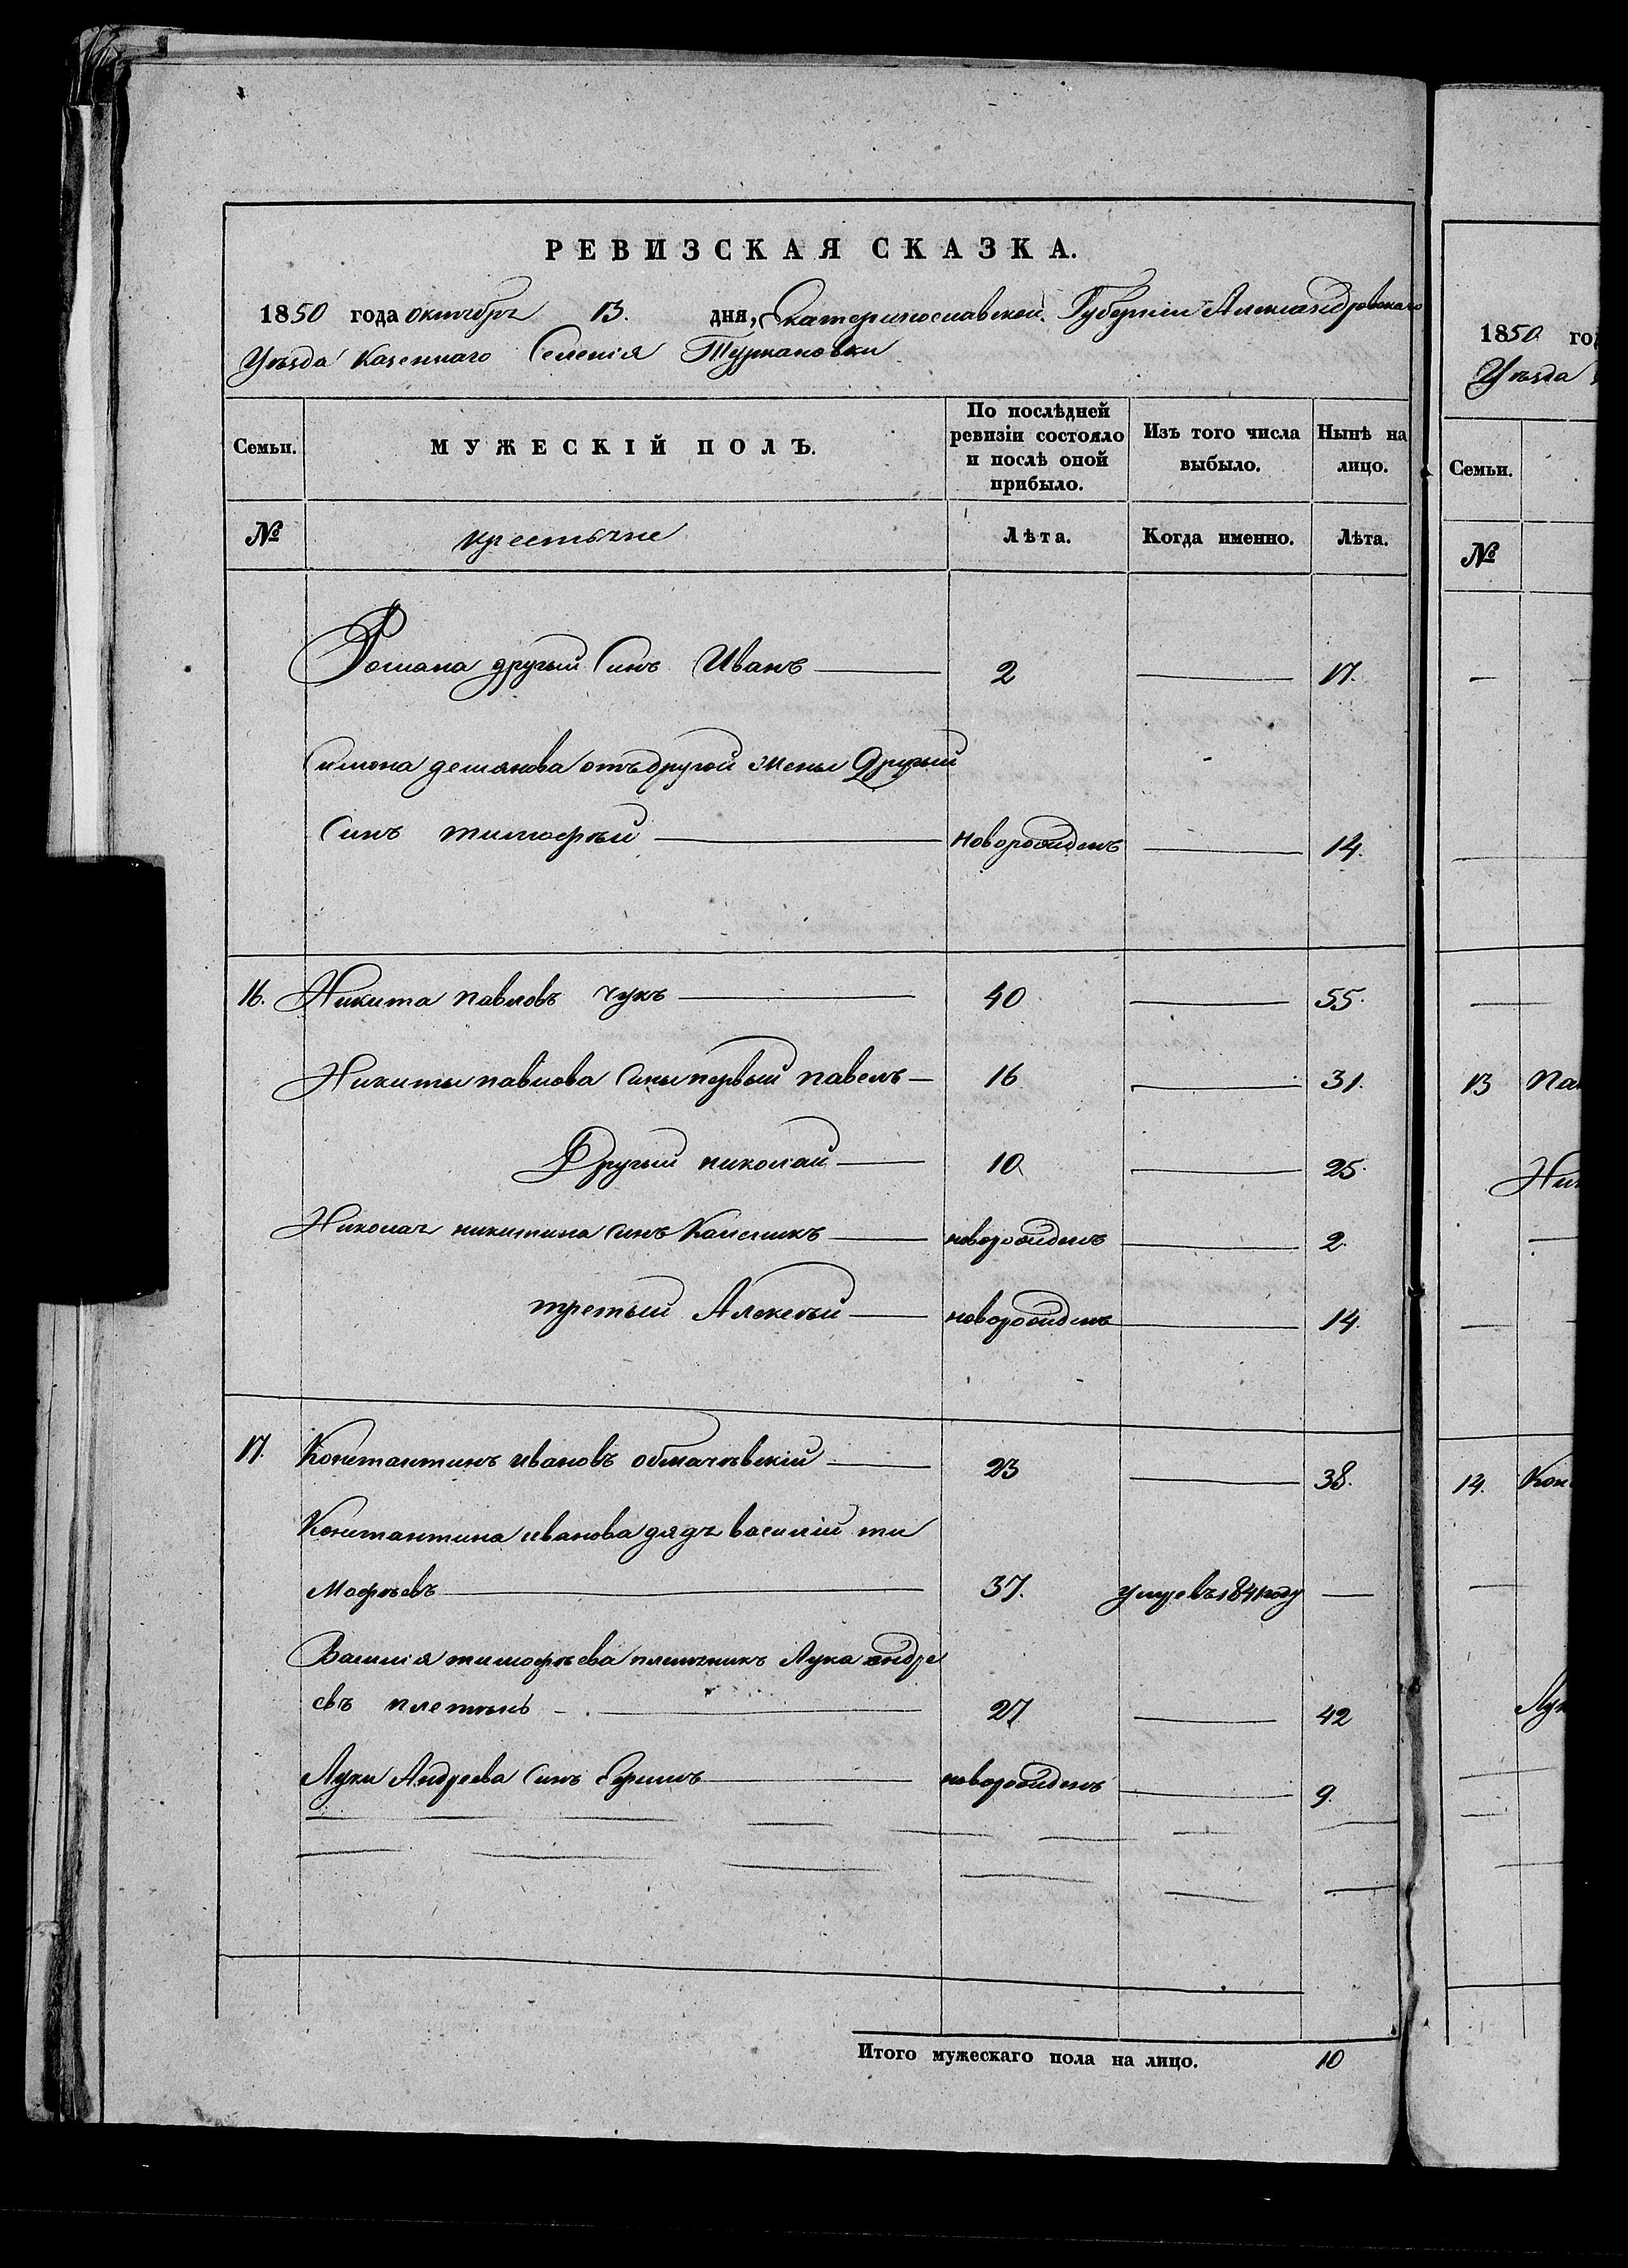 РЕВИЗСКАЯ СКАЗКА.
1850 года октября 13. дня, Екатеринославской Губерніи Александровскаго
Уѣзда Казеннаго Селенія Туркановки
Семьи. МУЖЕСКІЙ ПОЛЪ. По послѣдней ревизіи состояло и послѣ оной прибыло. Изъ того числа выбыло. Нынѣ на лицо.
№ крестьяне Лѣта. Когда именно. Лѣта.
Романа другый Синъ Иванъ 2 17.
Симона демянова отъ другой жены Другый
Синъ тимофѣй новорожденъ 14.
16. Никита павловъ чукъ 40 55.
Никиты павлова Сины первый павелъ 16 31.
Другый николай 10 25.
Николая никитина Синъ Калиникъ новорожденъ 2.
третый Алексѣй новорожденъ 14.
17. Константинъ ивановъ обмачевскій 23 38.
Константина иванова дядя василій ти
мофѣевъ 37. умре въ 1841 году
Василія тимофѣева племяникъ Лука андре
евъ плетѣнь 27 42
Луки Андреева Синъ Ефимъ новорожденъ 9.
Итого мужескаго пола на лицо. 10
1850 го
Уѣзда
Семьи.
№
13 Па
Ни
14. Кон
Лук